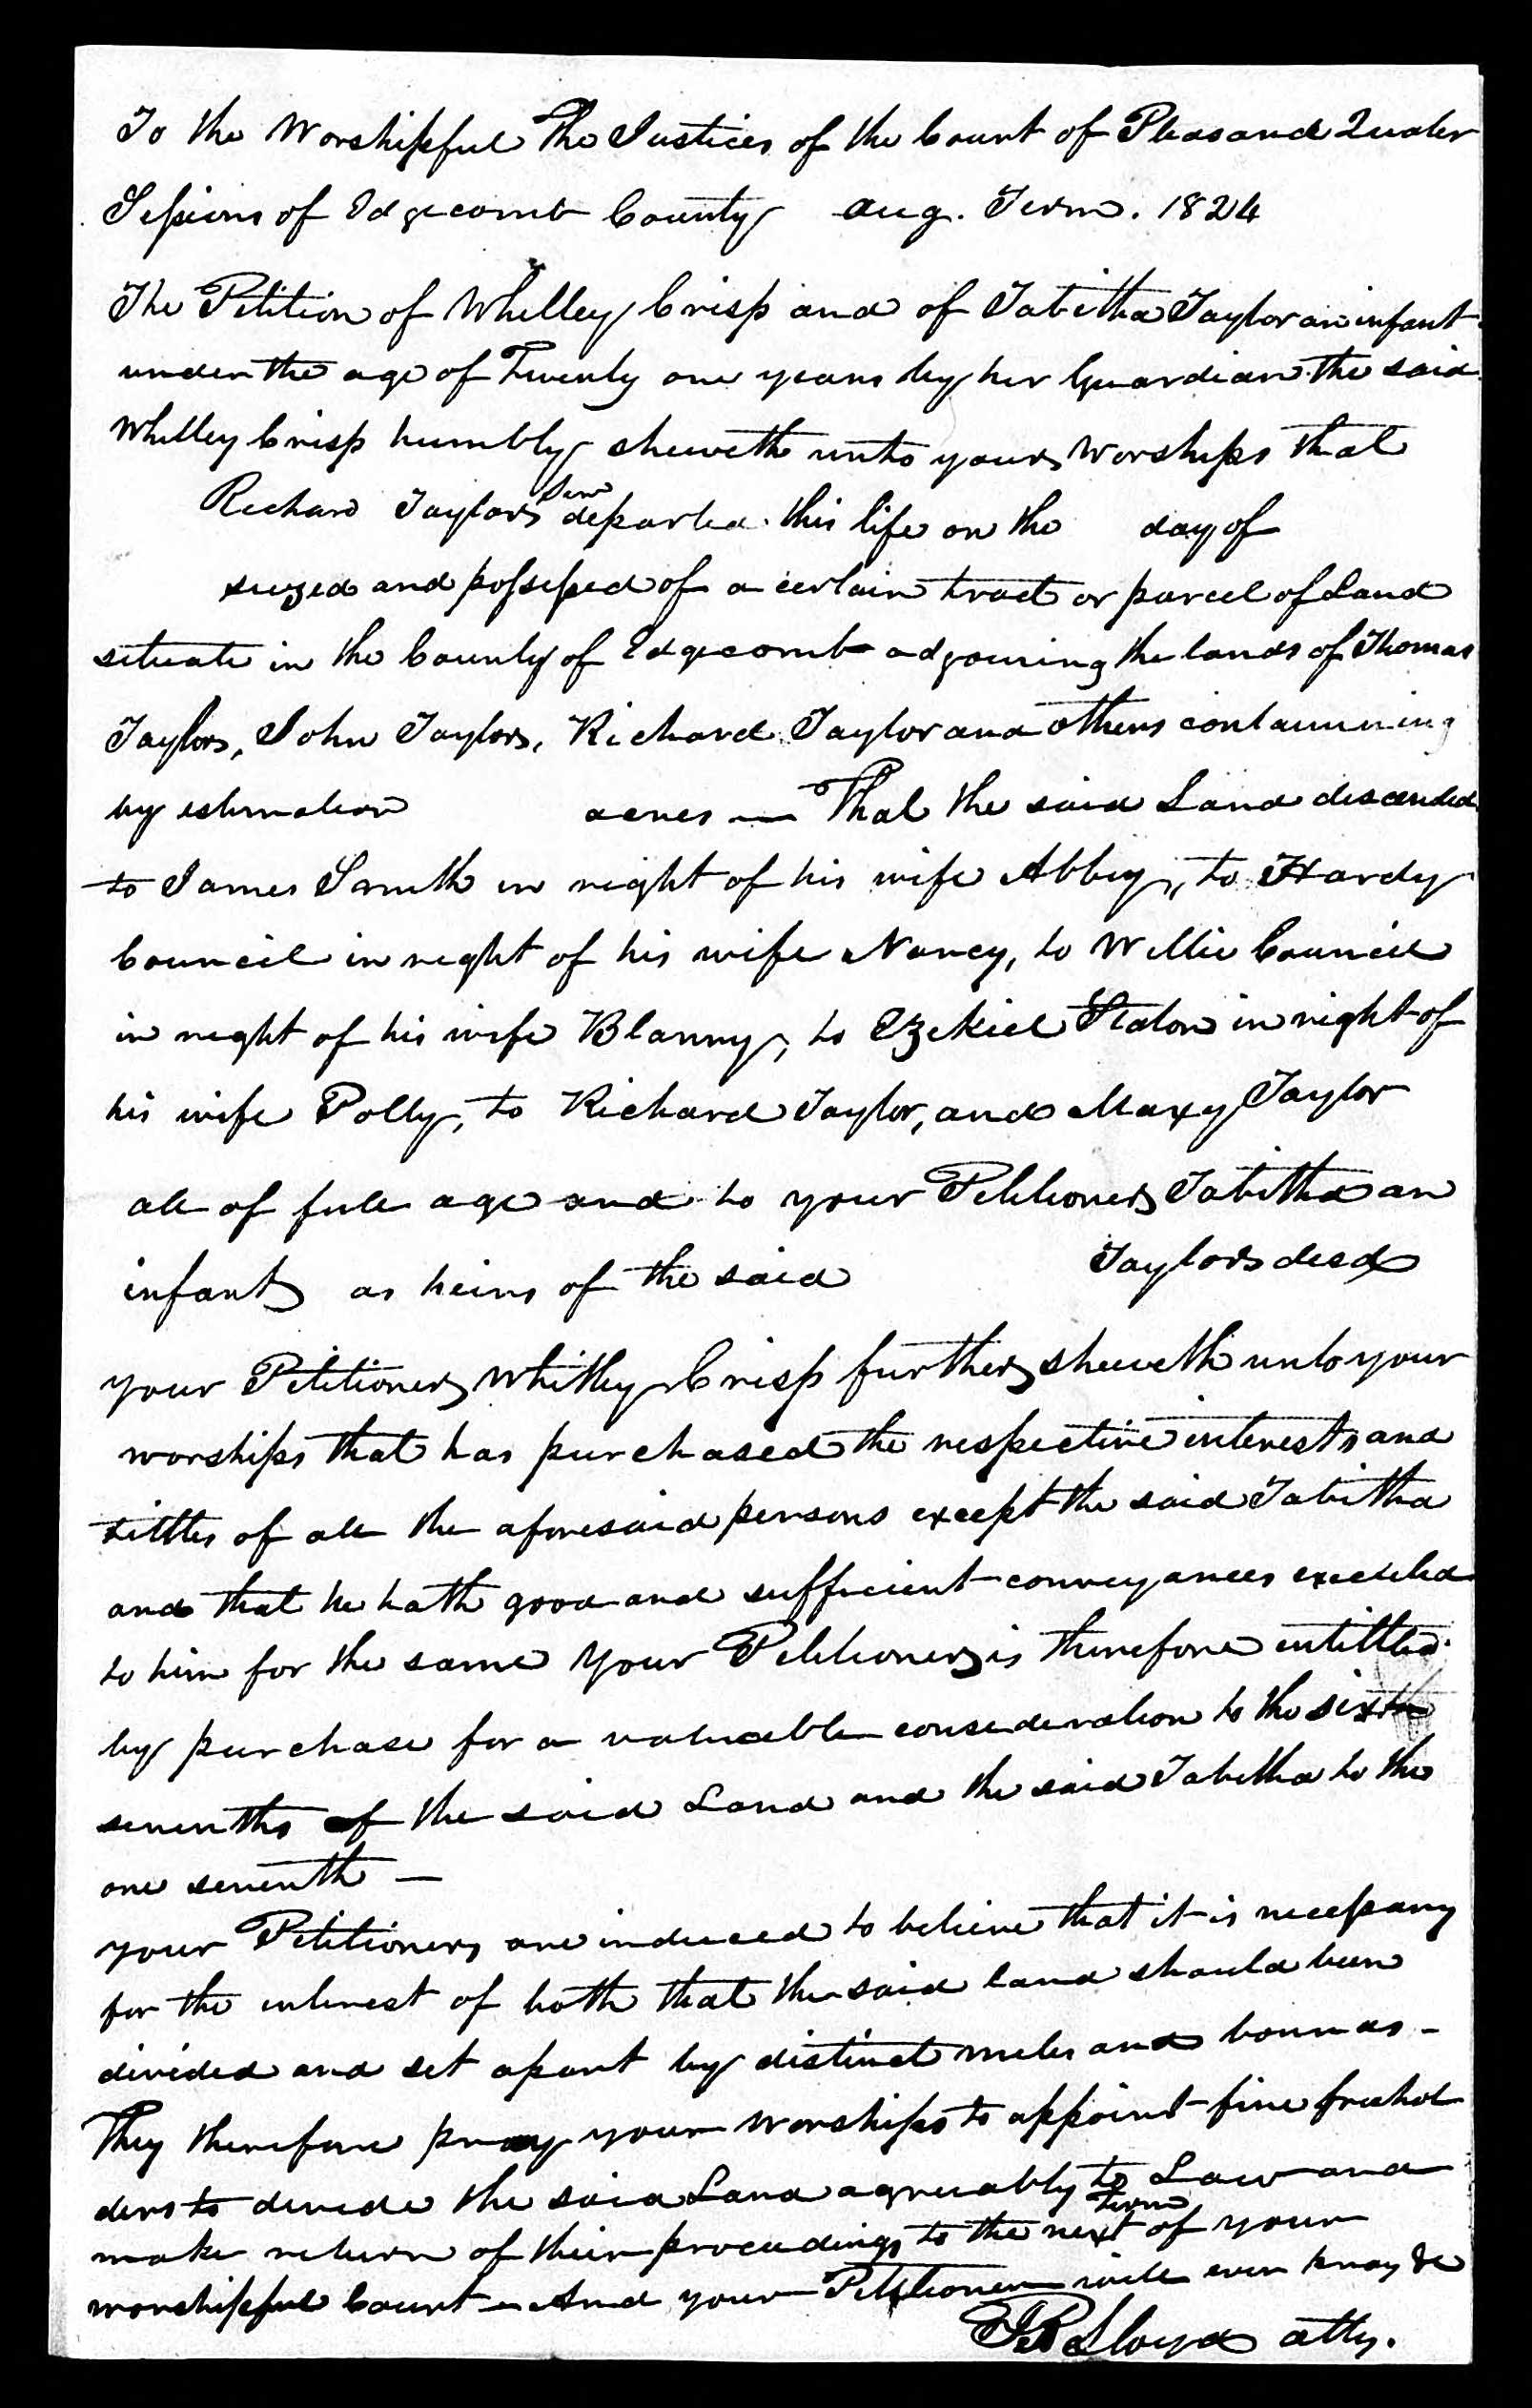 To the Worshipful The Justices of the Court of Pleas and Quater
Sessions of Edgecomb County Aug. Term. 1824
The Petition of Whitley Crisp and of Tabitha Taylor an infant
under the age of Twenty one years by her Guardian the said
Whitley Crisp humbly sheweth unto your Worships that
Richard Taylor Senr departed this life on the day of
siezed and possessed of a certain tract or parcel of Land
situate in the County of Edgecomb adjoining the lands of Thomas
Taylor, John Taylor, Richard Taylor and others containing
by estimation acres — That the said Land descended
to James Smith in right of his wife Abby, to Hardy
Council in right of his wife Nancy, to Willie Council
in right of his wife Blanny, to Ezekiel Staton in right of
his wife Polly, to Richard Taylor, and Maxy Taylor
all of full age and to your Petitioner Tabitha an
infant as heirs of the said Taylor decd
your Petitioner Whitley Crisp further sheweth unto your
worships that has purchased the respective interests and
tittles of all the aforesaid persons except the said Tabitha
and that he hath good and sufficient conveyances executed
to him for the same Your Petitioner is therefore entittled
by purchase for a valuable consideration to the six
sevenths of the said Land and the said Tabitha to the
one seventh —
your Petitioners are induced to believe that it is necessary
for the interest of both that the said land should been
divided and set apart by distinct metes and bounds —
They therefore pray your Worships to appoint five freehol
ders to devide the said Land agreeably to Law and
make return of their proceedings to the next Term of your
worshipful Court — And your Petitioner will ever pray &c
Lloyd atty.